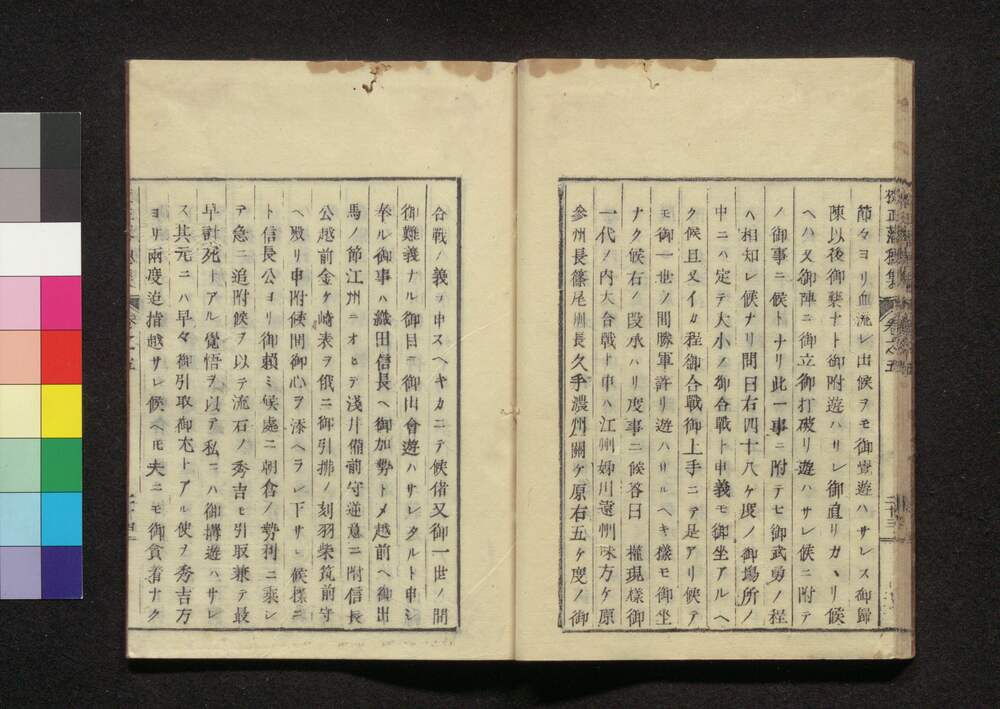 校正落穂集 卷之五 二十三
節々ヨリ血流レ出候ヲモ御覺遊ハサレス御歸
陳以後御藥ナト御附遊ハリレ御直リカヽリ候
ヘハ又御陣ニ御立御打破リ遊ハサレ候ニ附テ
ノ御事ニ候トナリ此一事ニ附テモ御武勇ノ程
ハ相知レ候ナリ問曰右四十八ケ度ノ御場所ノ
中ニハ定テ大小ノ御合戰ト申義モ御坐アルヘ
ク候且又イカ程御合戰御上手ニテ是アリ候テ
モ御一世ノ間勝軍許リ遊ハサルヘキ樣モ御坐
ナク候右ノ段承ハリ度事ニ候答曰 權現樣御
一代ノ内大合戰ト申ハ江州姊川遠州味方ケ原
參州長篠尾州長久手濃州關ケ原右五ケ度ノ御
合戰ノ義ヲ申スヘキカニテ候偖又御一世ノ間
御難義ナル御目ニ御出會遊ハサレタルト申シ
奉ル御事ハ織田信長ヘ御加勢トメ越前ヘ御出
馬ノ節江州ニオヒテ淺井備前守逆意ニ附信長
公越前金ケ崎表ヲ俄ニ御引拂ノ刻羽柴筑前守
ヘ殿リ申附候間御心ヲ添ヘラレ下サレ候樣ニ
ト信長公ヨリ御賴ミ候處ニ朝倉ノ勢利ニ乘レ
ア急ニ追附候ヲ以テ流石ノ秀吉モ引取兼テ最
早討死トアル覺悟ヲ以テ私ニハ御搆遊ハサレ
ス其元ニハ早々御引取御尤トアル使ヲ秀吉方
ヨリ兩度迄指越サレ候ヘモ夫ニモ御貪着ナク